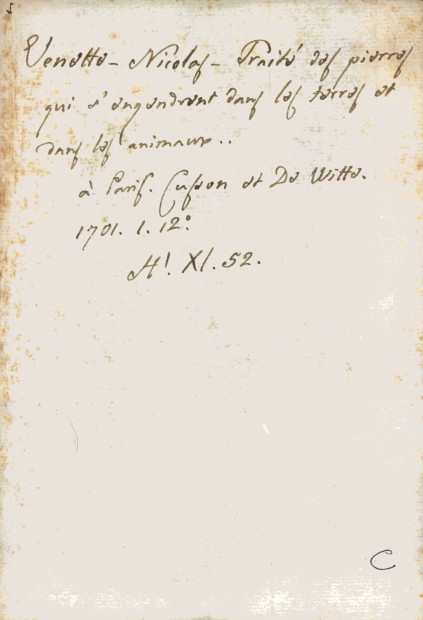 Venette - Nicolas - Traité des pierres
qui s'engendrent dans les terres et
dans les animaux..
à Paris. Cusson et De Witte.
1701. 1. 12°.
H1. XI. 52.
C